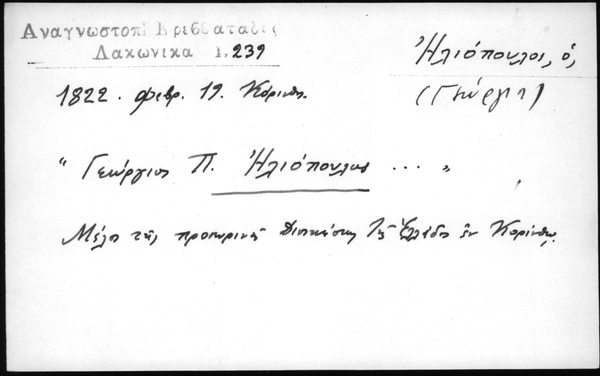 Ἀναγνωστοπ Κρεββαταδες
Λακωνικα 1, 239
Ἠλιόπουλος, ὁ,
1822. Φεβρ. 19. Κόρινθ.
(Γεώργιος)
" Γεώργιος Π. Ἠλιόπουλος ... "
Μέλος τῆς προσωρινῆς Διοικήσεως τῆς Ἑλλάδος ἐν Κορίνθῳ.